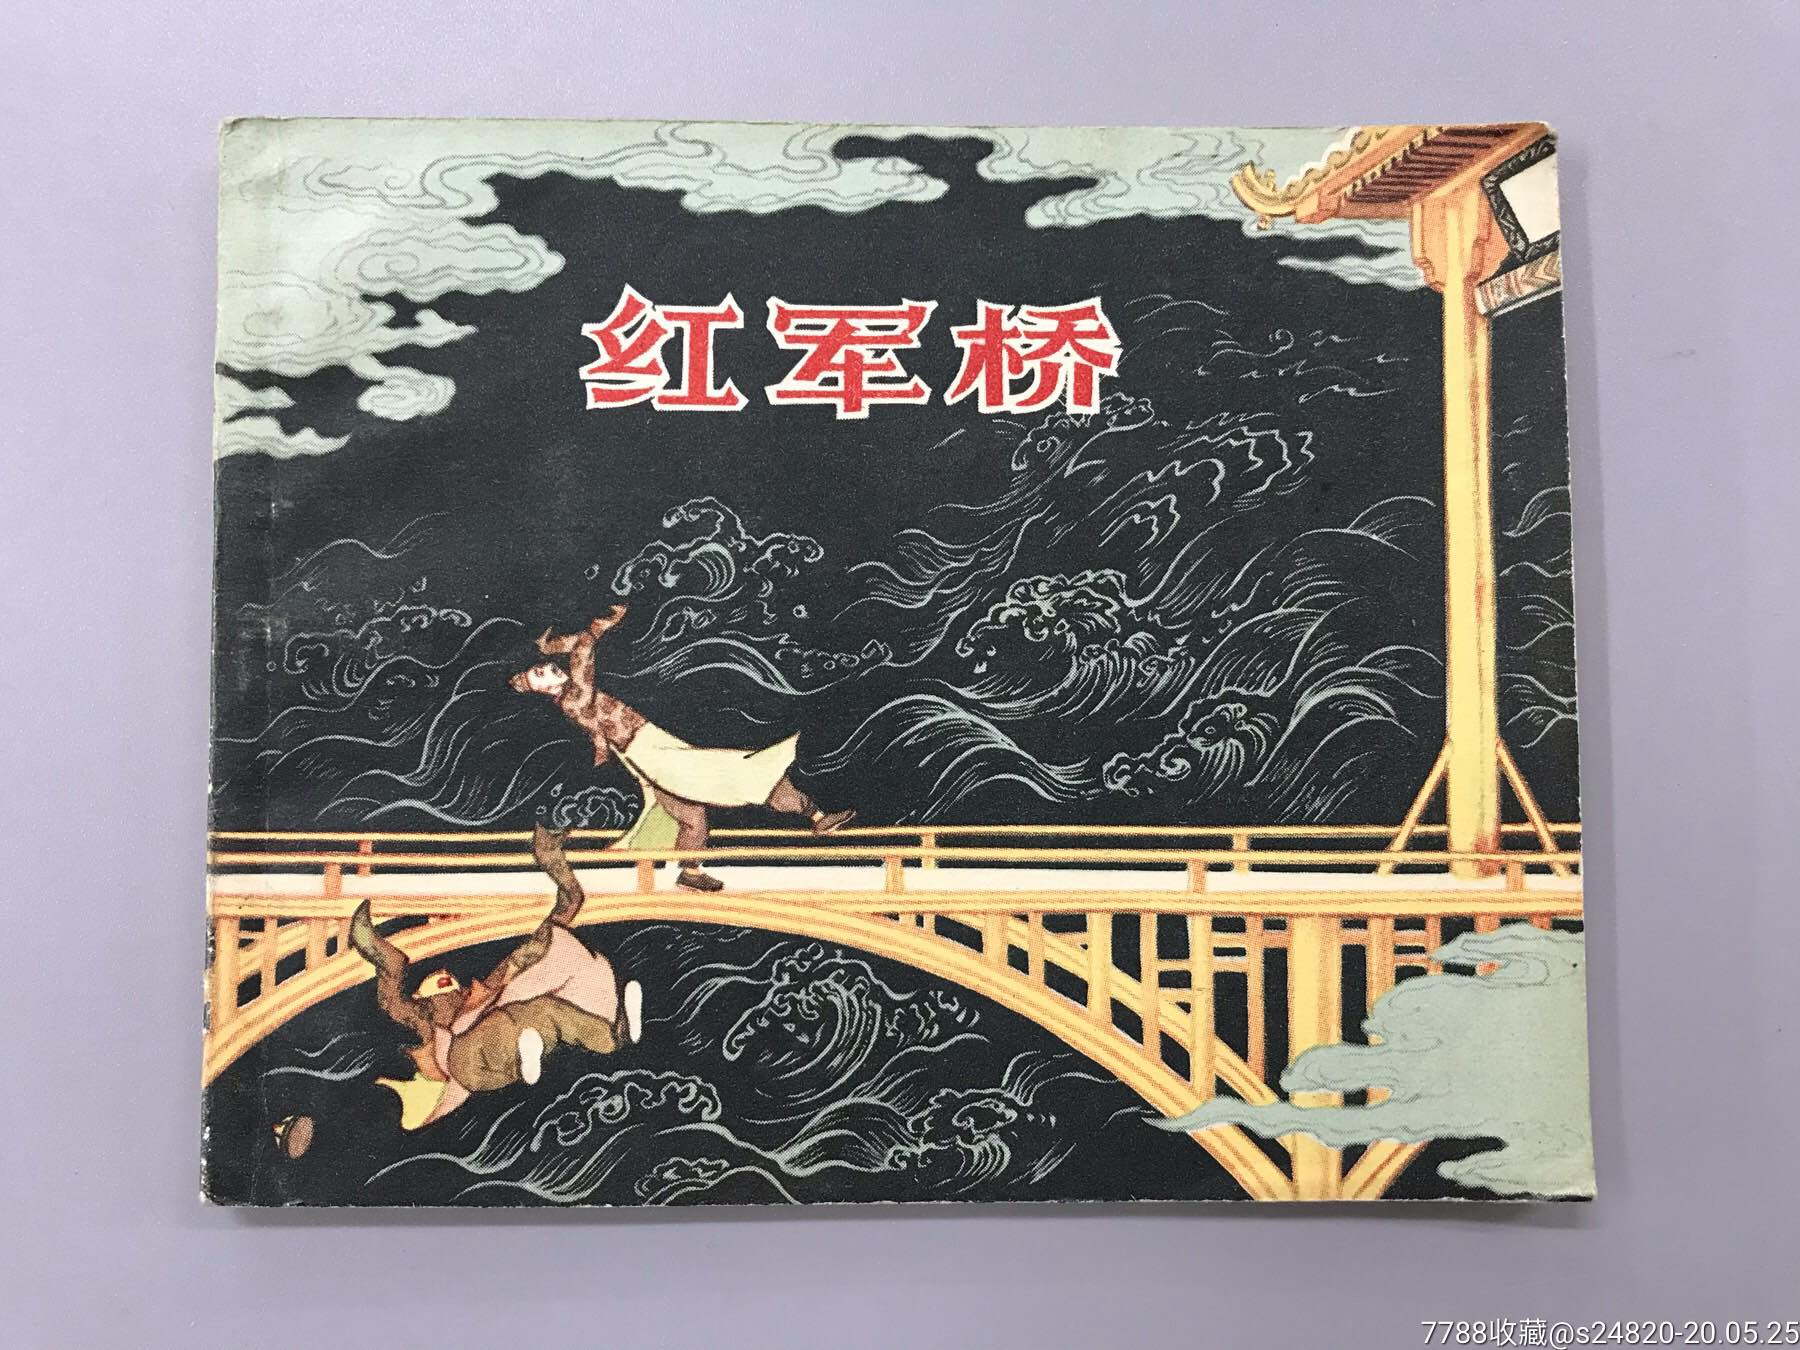 红军桥
7788收藏@s24820-20.05.25